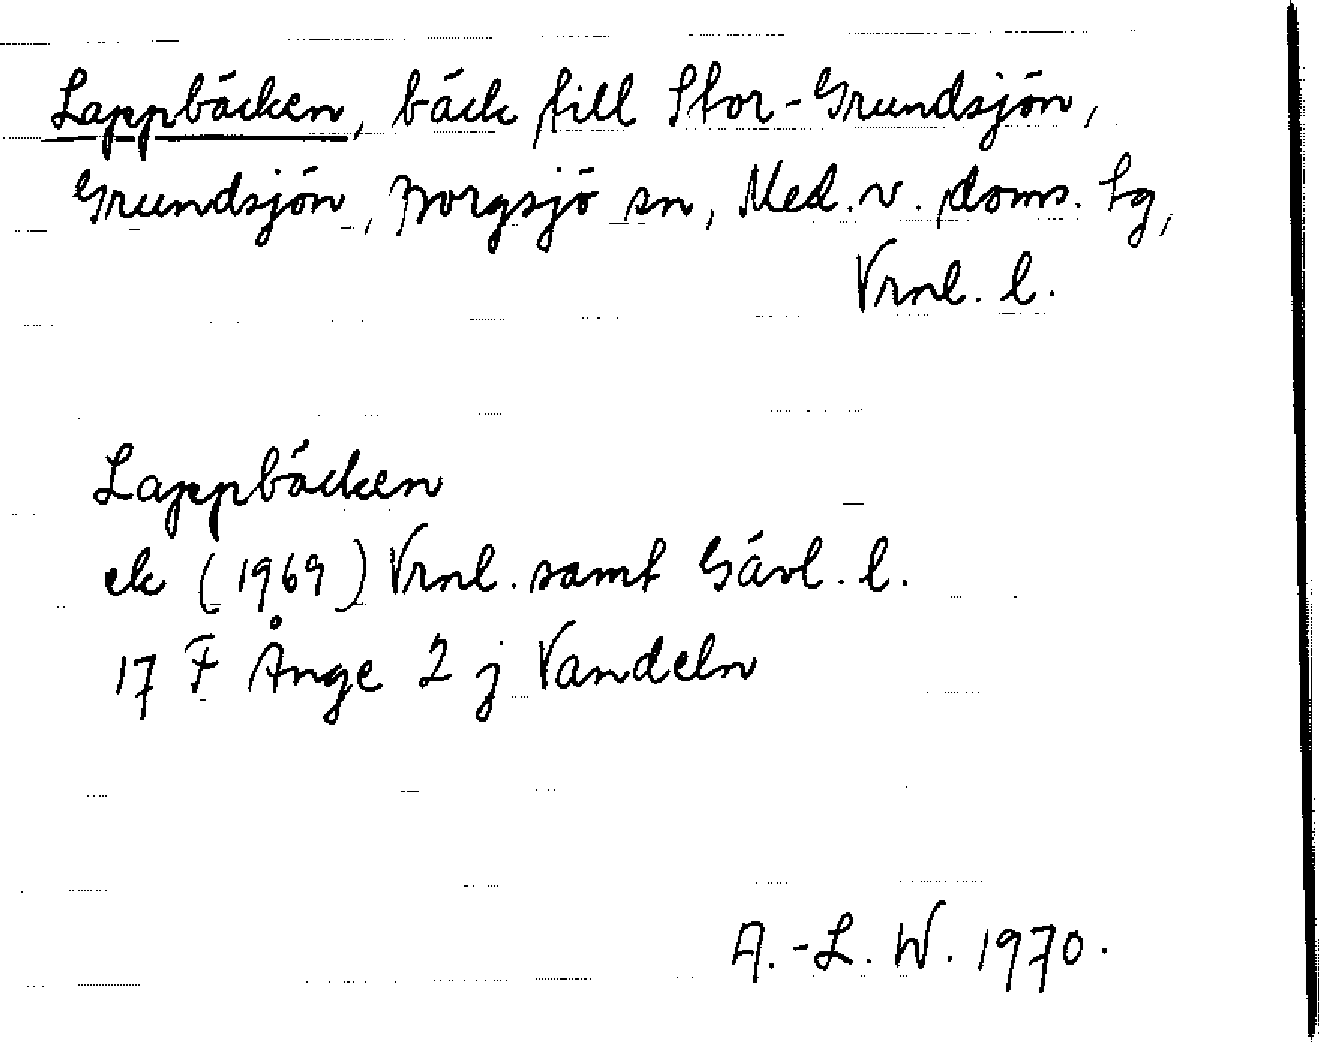 Lappbäcken, bäck till Stor-Grundsjön,
Grundsjön, Borgsjö sn, Med. v. doms. tg,
Vrnl. l.
Lappbäcken
ek (1969) Vrnl. samt Gävl. l.
17 F Ånge 2 j Vandeln
A.-L. W. 1970.